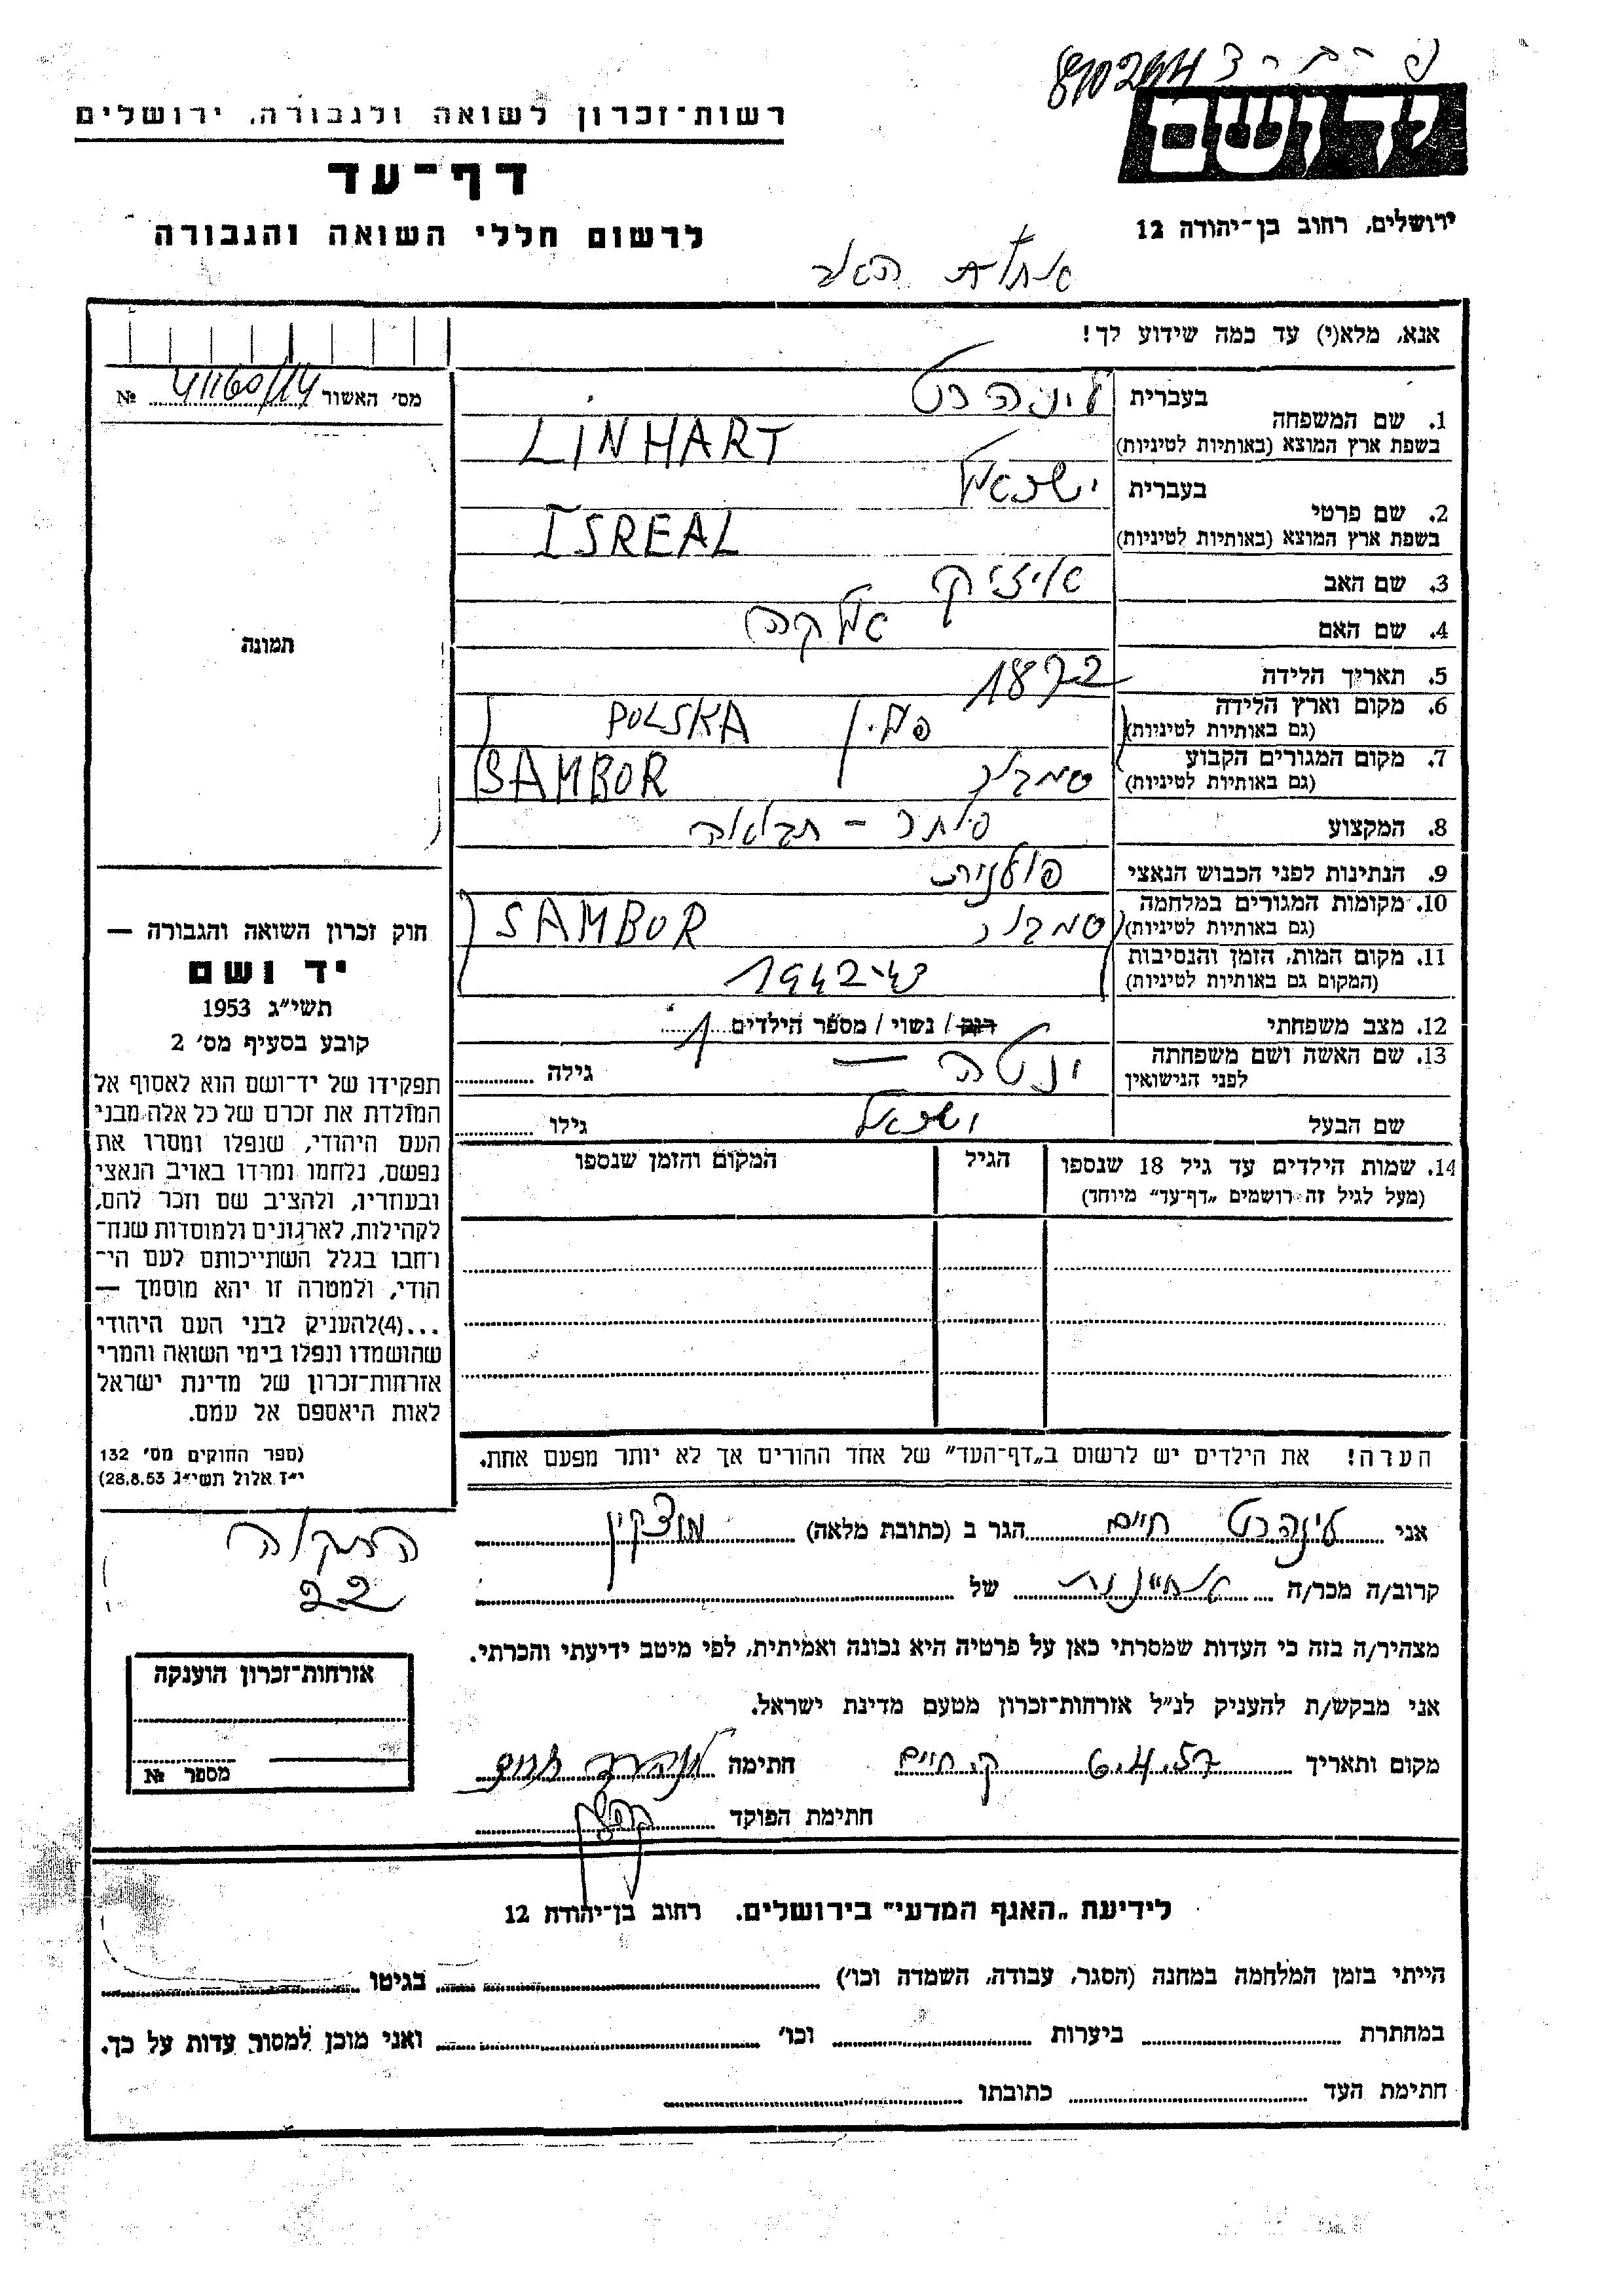 810264
רשות־זכרון לשואה ולגבורה, ירושלים
ידושם
דף־עד
לרשום חללי השואה והגבורה
ירושלים, רחוב בן־יהודה 12
אנא, מלא(י) עד כמה שידוע לך!
מס׳ האשור 41160/14 №
תמונה
1. שם המשפחה
בעברית לינהרט
בשפת ארץ המוצא (באותיות לטיניות) LINHART
2. שם פרטי
בעברית ישראל
בשפת ארץ המוצא (באותיות לטיניות) ISREAL
3. שם האב אייזיק
4. שם האם
5. תאריך הלידה 1872
6. מקום וארץ הלידה
(גם באותיות לטיניות) פולין POLSKA
7. מקום המגורים הקבוע
(גם באותיות לטיניות) סמבור SAMBOR
8. המקצוע
9. הנתינות לפני הכבוש הנאצי פולנית
10. מקומות המגורים במלחמה
(גם באותיות לטיניות) סמבור SAMBOR
11. מקום המות, הזמן והנסיבות
(המקום גם באותיות לטיניות) 1942-43
12. מצב משפחתי רווק / נשוי / מספר הילדים 1
13. שם האשה ושם משפחתה
לפני הנישואין ינטה — גילה
שם הבעל ישראל גילו
14. שמות הילדים עד גיל 18 שנספו
(מעל לגיל זה רושמים „דף־עד״ מיוחד)
הגיל
המקום והזמן שנספו
חוק זכרון השואה והגבורה —
יד ושם
תשי״ג 1953
קובע בסעיף מס׳ 2
תפקידו של יד־ושם הוא לאסוף אל
המולדת את זכרם של כל אלה מבני
העם היהודי, שנפלו ומסרו את
נפשם, נלחמו ומרדו באויב הנאצי
ובעוזריו, ולהציב שם וזכר להם,
לקהילות, לארגונים ולמוסדות שנח־
רחבו בגלל השתייכותם לעם הי־
הודי, ולמטרה זו יהא מוסמך —
...(4)להעניק לבני העם היהודי
שהושמדו ונפלו בימי השואה והמרי
אזרחות־זכרון של מדינת ישראל
לאות היאספם אל עמם.
(ספר החוקים מס׳ 132
י״ז אלול תשי״ג 28.8.53)
הערה! את הילדים יש לרשום ב„דף־העד״ של אחד ההורים אך לא יותר מפעם אחת.
אני לינהרט חיים הגר ב (כתובת מלאה) מוצקין
התקוה
22
קרוב/ה מכר/ה של
מצהיר/ה בזה כי העדות שמסרתי כאן על פרטיה היא נכונה ואמיתית, לפי מיטב ידיעתי והכרתי.
אני מבקש/ת להעניק לנ״ל אזרחות־זכרון מטעם מדינת ישראל.
מקום ותאריך 6.4.57 ק. חיים חתימה לינהרט חיים
חתימת הפוקד
אזרחות־זכרון הוענקה
מספר №
לידיעת „האגף המדעי״ בירושלים, רחוב בן־יהודה 12
הייתי בזמן המלחמה במחנה (הסגר, עבודה, השמדה וכו׳) בגיטו
במחתרת ביערות וכו׳ ואני מוכן למסור עדות על כך.
חתימת העד כתובתו